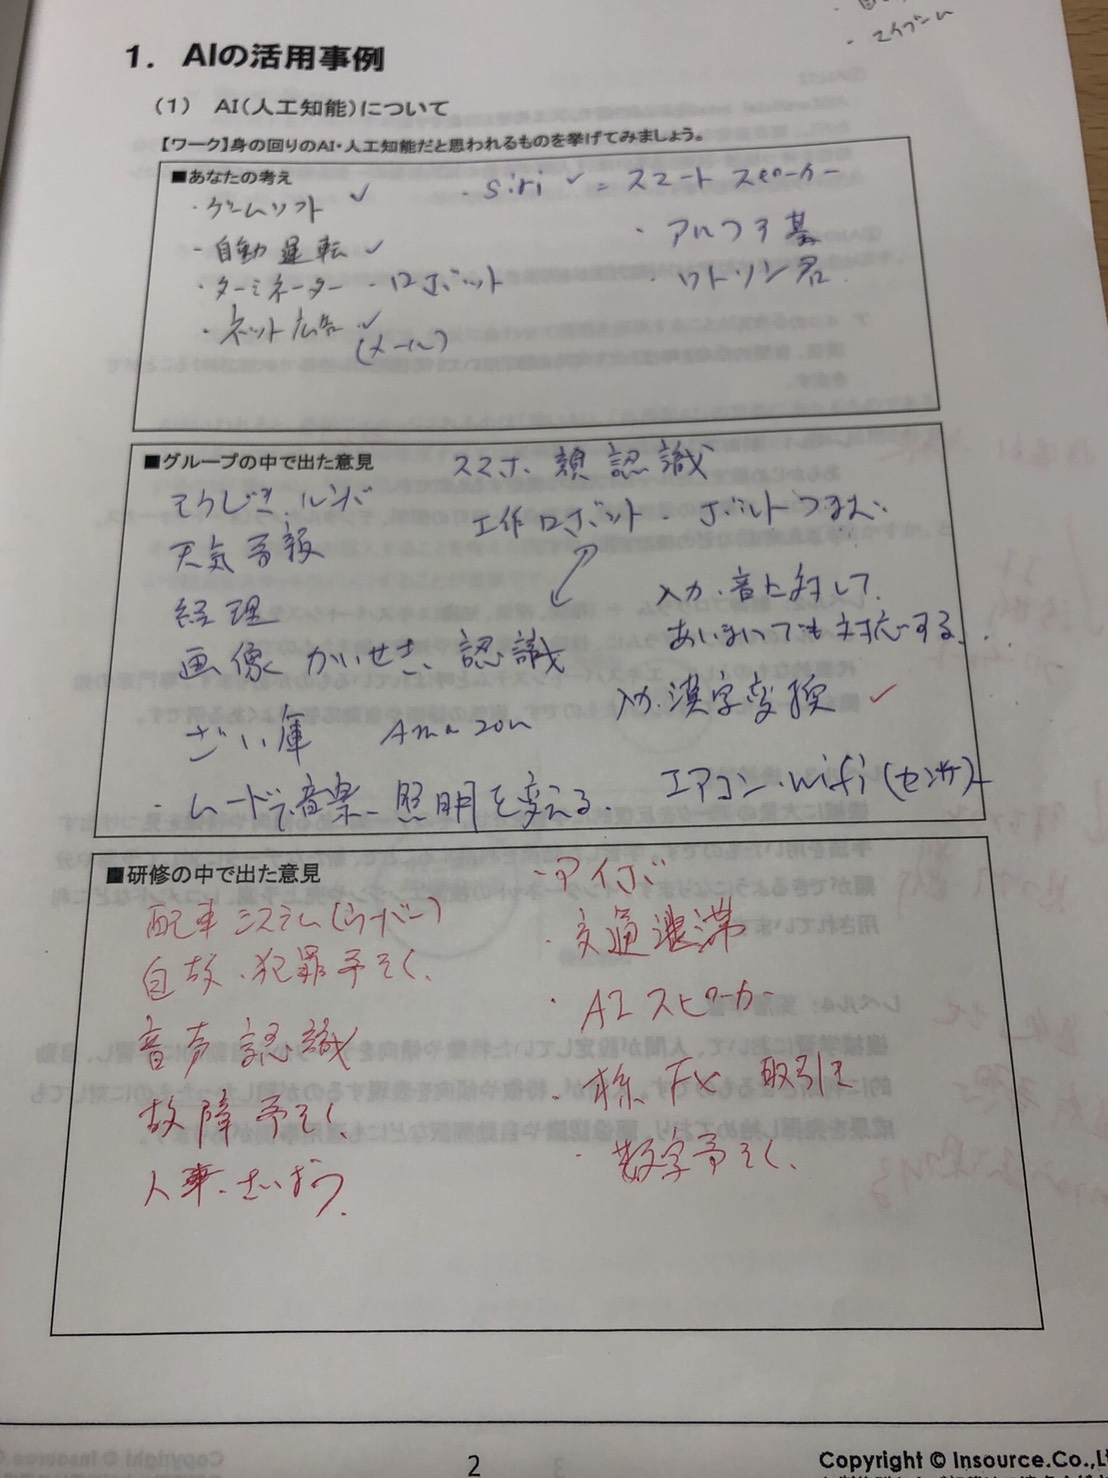 ・マイブーム
1. AIの活用事例
(1) AI(人工知能)について
【ワーク】身の回りのAI・人工知能だと思われるものを挙げてみましょう。
■あなたの考え
・ゲームソフト ✓
・自動運転 ✓
・ターミネーター ・ロボット
・ネット広告 ✓
(メール)
・Siri ✓ = スマートスピーカー
・アルファ碁
・ワトソン君
■グループの中で出た意見
そうじき、ルンバ
天気予報
経理
画像かいせき、認識
ざい庫 Amazon
・ムードで音楽、照明を変える、
スマホ 顔認識
工作ロボット ・ボルトつまむ
入力・音に対して、
あいまいでも対応する、
入力・漢字変換 ✓
エアコン・wifi(センサー
■研修の中で出た意見
配車システム(ウーバー)
自故・犯罪予そく、
音声認識
故障予そく、
人事、さいよう、
・アイボ
・交通渋滞
・AIスピーカー
・株 FX 取引
・数字予そく、
2
Copyright © Insource.Co.,L